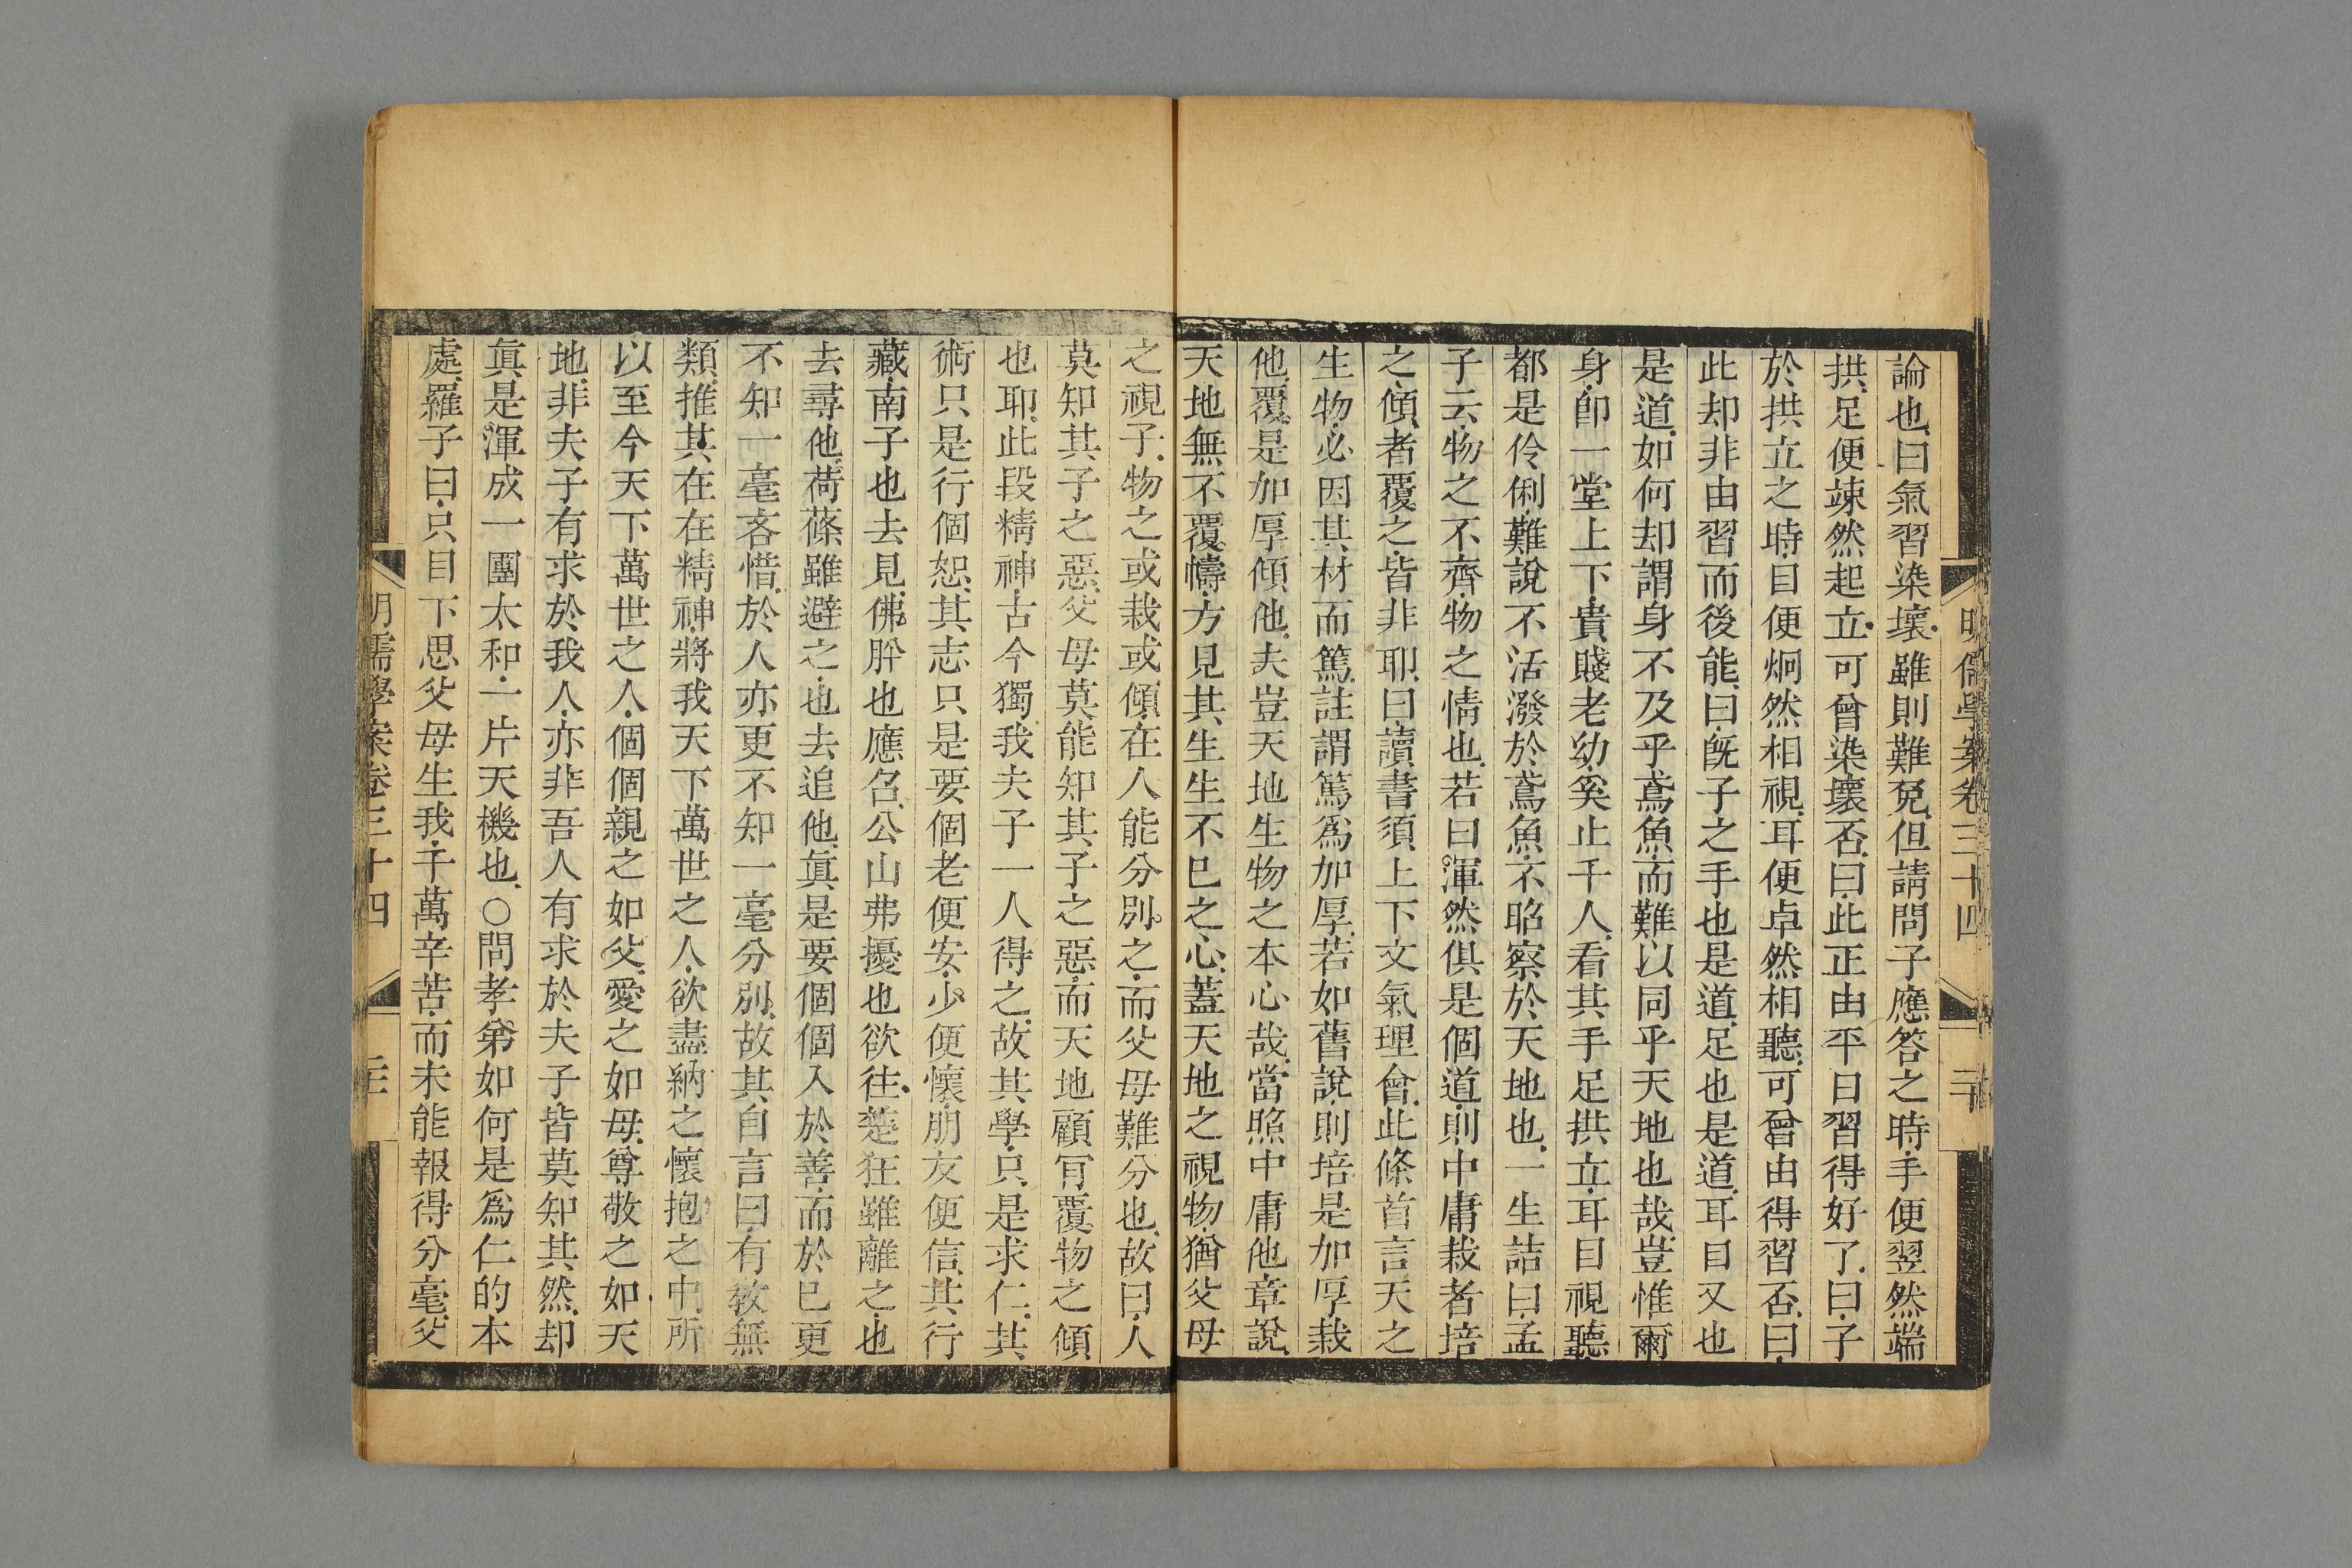 明儒學案卷三十四
二十
論也曰氣習染壞雖則難免但請問子應答之時手便翌然端
拱足便竦然起立可曾染壞否曰此正由平日習得好了曰子
於拱立之時目便炯然相視耳便卓然相聽可曾由得習否曰
此却非由習而後能曰旣子之手也是道足也是道耳目又也
是道如何却謂身不及乎鳶魚而難以同乎天地也哉豈惟爾
身卽一堂上下貴賤老幼奚止千人看其手足拱立耳目視聽
都是伶俐難說不活潑於鳶魚不昭察於天地也一生詰曰孟
子云物之不齊物之情也若曰渾然俱是個道則中庸栽者培
之傾者覆之皆非耶曰讀書須上下文氣理會此條首言天之
生物必因其材而篤註謂篤爲加厚若如舊說則培是加厚栽
他覆是加厚傾他夫豈天地生物之本心哉當照中庸他章說
天地無不覆幬方見其生生不已之心蓋天地之視物猶父母
之視子物之或栽或傾在人能分別之而父母難分也故曰人
莫知其子之惡父母莫能知其子之惡而天地顧肯覆物之傾
也耶此段精神古今獨我夫子一人得之故其學只是求仁其
術只是行個恕其志只是要個老便安少便懷朋友便信其行
藏南子也去見佛肸也應召公山弗擾也欲往楚狂雖離之也
去尋他荷蓧雖避之也去追他眞是要個個入於善而於已更
不知一毫吝惜於人亦更不知一毫分別故其自言曰有敎無
類推其在在精神將我天下萬世之人欲盡納之懷抱之中所
以至今天下萬世之人個個親之如父愛之如母尊敬之如天
地非夫子有求於我人亦非吾人有求於夫子皆莫知其然却
眞是渾成一團太和一片天機也○問孝弟如何是爲仁的本
處羅子曰只目下思父母生我千萬辛苦而未能報得分毫父
明儒學案卷三十四